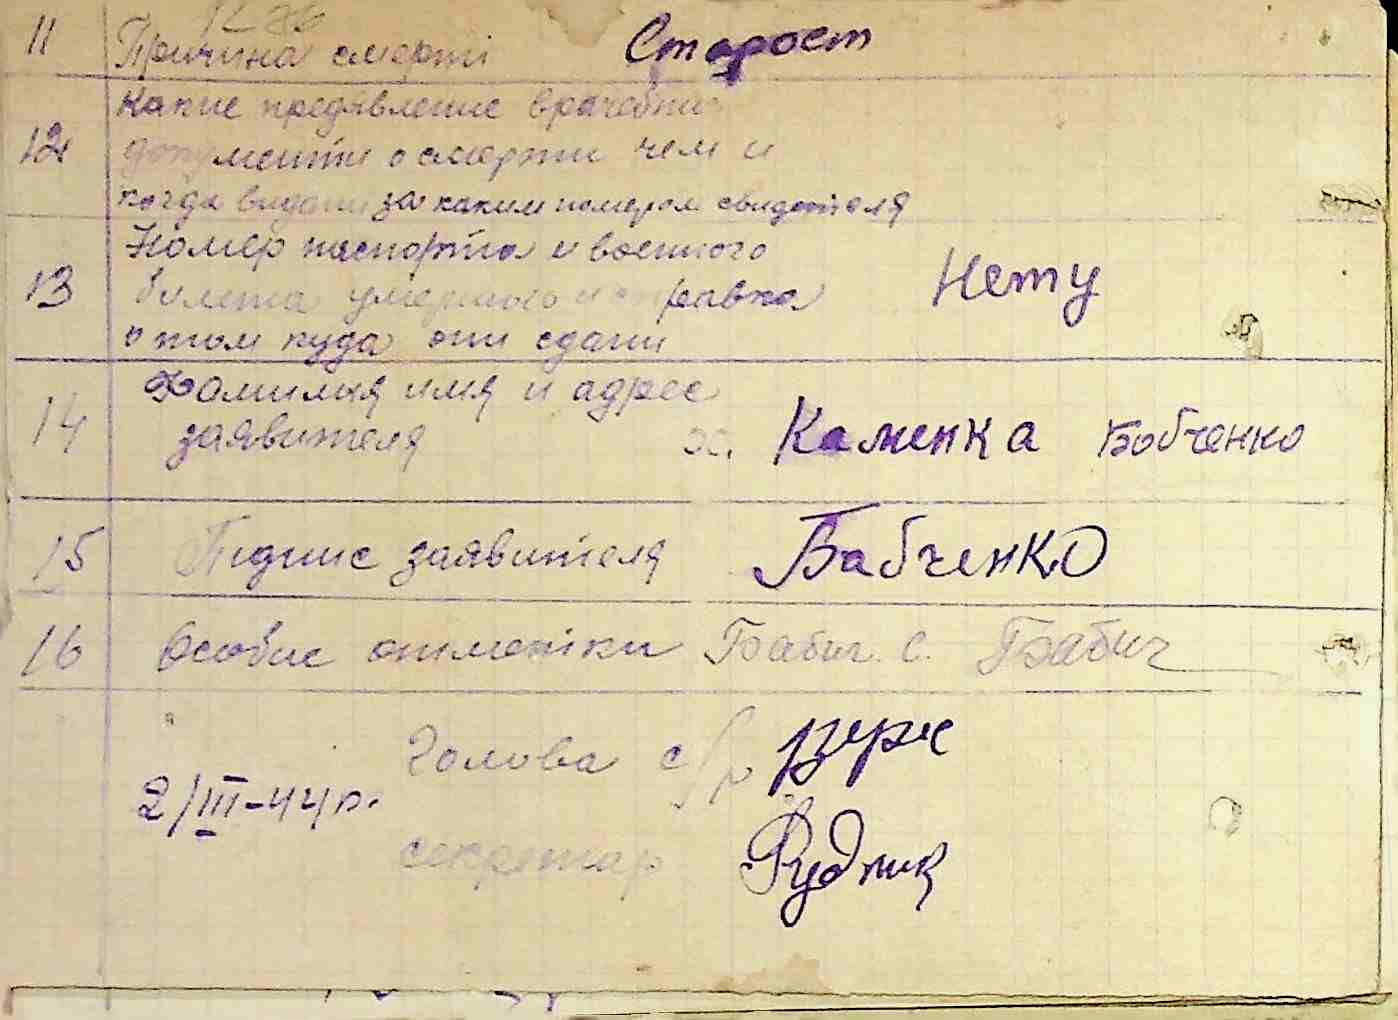 11 Причина смерті Старост
Какие предявление врачебние
12 документи о смерти чем и
когда видани за каким номером свидетеля
Номер паспорта и военного
13 билета умершого и справка Нету
о том куда они сдани
Фамилия имя и адрес
14 заявителя х. Каменка Бобченко
15 Підпис заявителя Бабченко
16 Особие отметки Бабич. С. Бабич
Голова с/р
2/III-44 р.
секретар Рудник